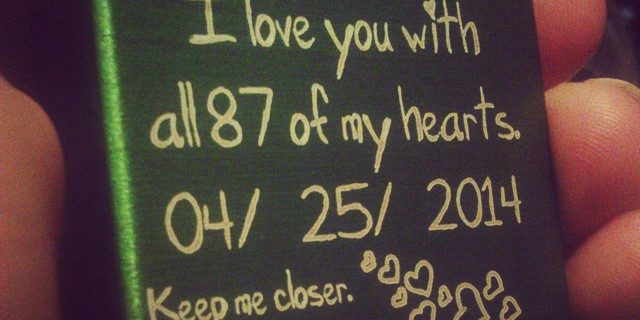 I love you with
all 87 of my hearts.
04/ 25/ 2014
Keep me closer.